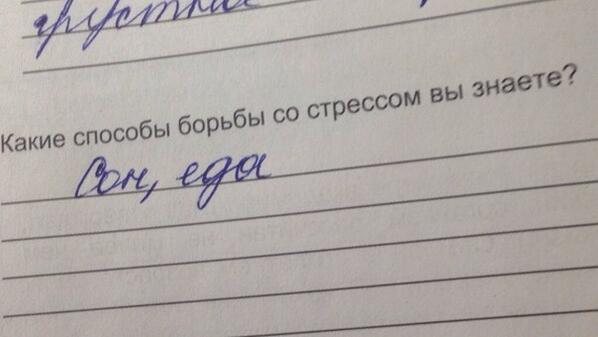 грустная
Какие способы борьбы со стрессом вы знаете?
Сон, еда